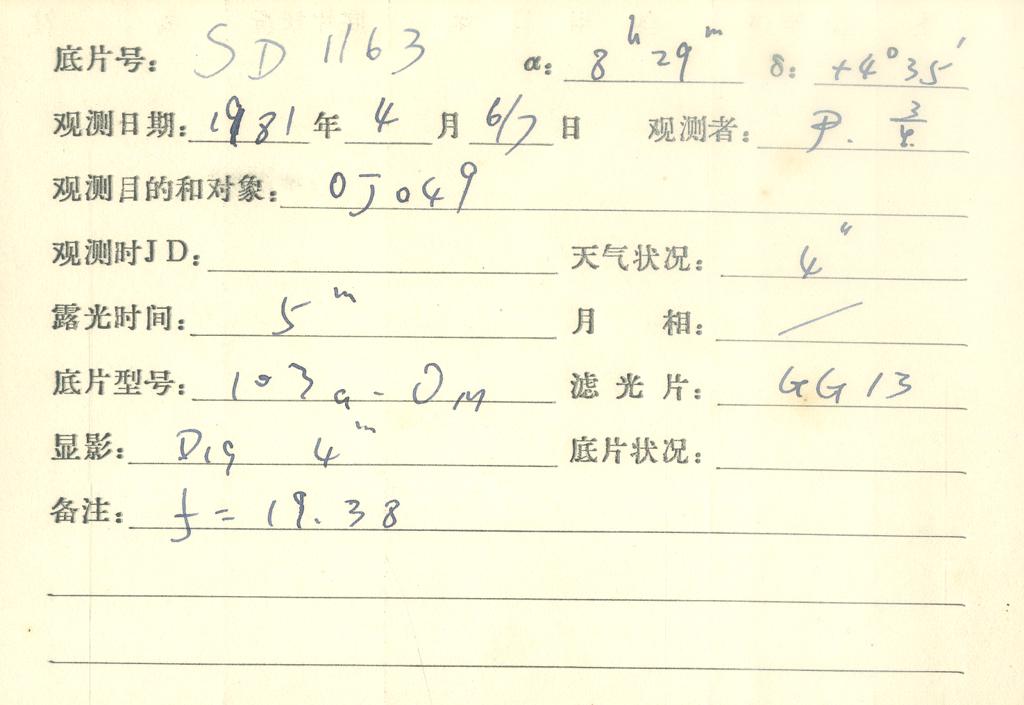 底片号: SD 1163 α: 8h 29m δ: +4°35′
观测日期: 1981 年 4 月 6/7 日 观测者: P.
观测目的和对象: OJ 049
观测时JD: 天气状况: 4″
露光时间: 5m 月 相: /
底片型号: 103a-O 滤光片: GG13
显影: D19 4m 底片状况:
备注: f = 19.38